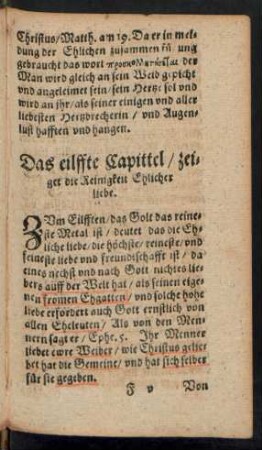 Christus/ Matth. am 19. Da er in mel-
dung der Ehlichen zusammen fü ung
gebraucht das wort προσκολληθήσεται der
Man wird gleich an sein Weib gepicht
vnd angeleimet sein/ sein Hertz sol vnd
wird an jhr/ als seiner einigen vnd aller
liebesten Hertzbrecherin/ vnd Augen-
lust hafften vnd hangen.
Das eilffte Capittel/ zei-
get die Reinigkeit Ehlicher
liebe.
ZVm Eilfften/ das Golt das reine-
ste Metal ist/ deutet das die Eh-
liche liebe/ die höchste/ reineste/ vnd
feineste liebe vnd freundtschafft ist/ da
eines nechst vnd nach Gott nichtes lie-
bers auff der Welt hat/ als seinen eige-
nen fromen Ehgatten/ vnd solche hohe
liebe erfordert auch Gott ernstlich von
allen Eheleuten/ Als von den Men-
nern sagt er/ Ephe. 5. Ihr Menner
liebet ewre Weiber/ wie Christus gelie-
bet hat die Gemeine/ vnd hat sich selber
für sie gegeben.
F v Von